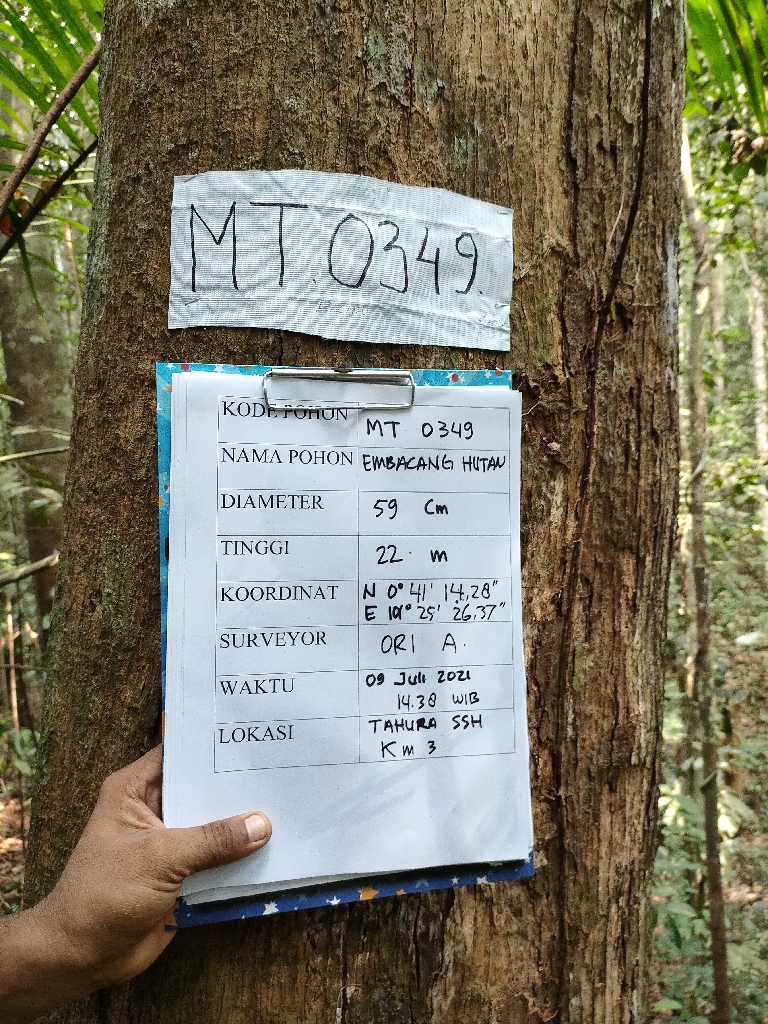 MT. 0349.
KODE POHON MT 0349
NAMA POHON EMBACANG HUTAN
DIAMETER 59 Cm
TINGGI 22. m
KOORDINAT N 0° 41' 14,28"
E 101° 25' 26,37"
SURVEYOR ORI A.
WAKTU 09 Juli 2021
14.38 WIB
LOKASI TAHURA SSH
Km 3